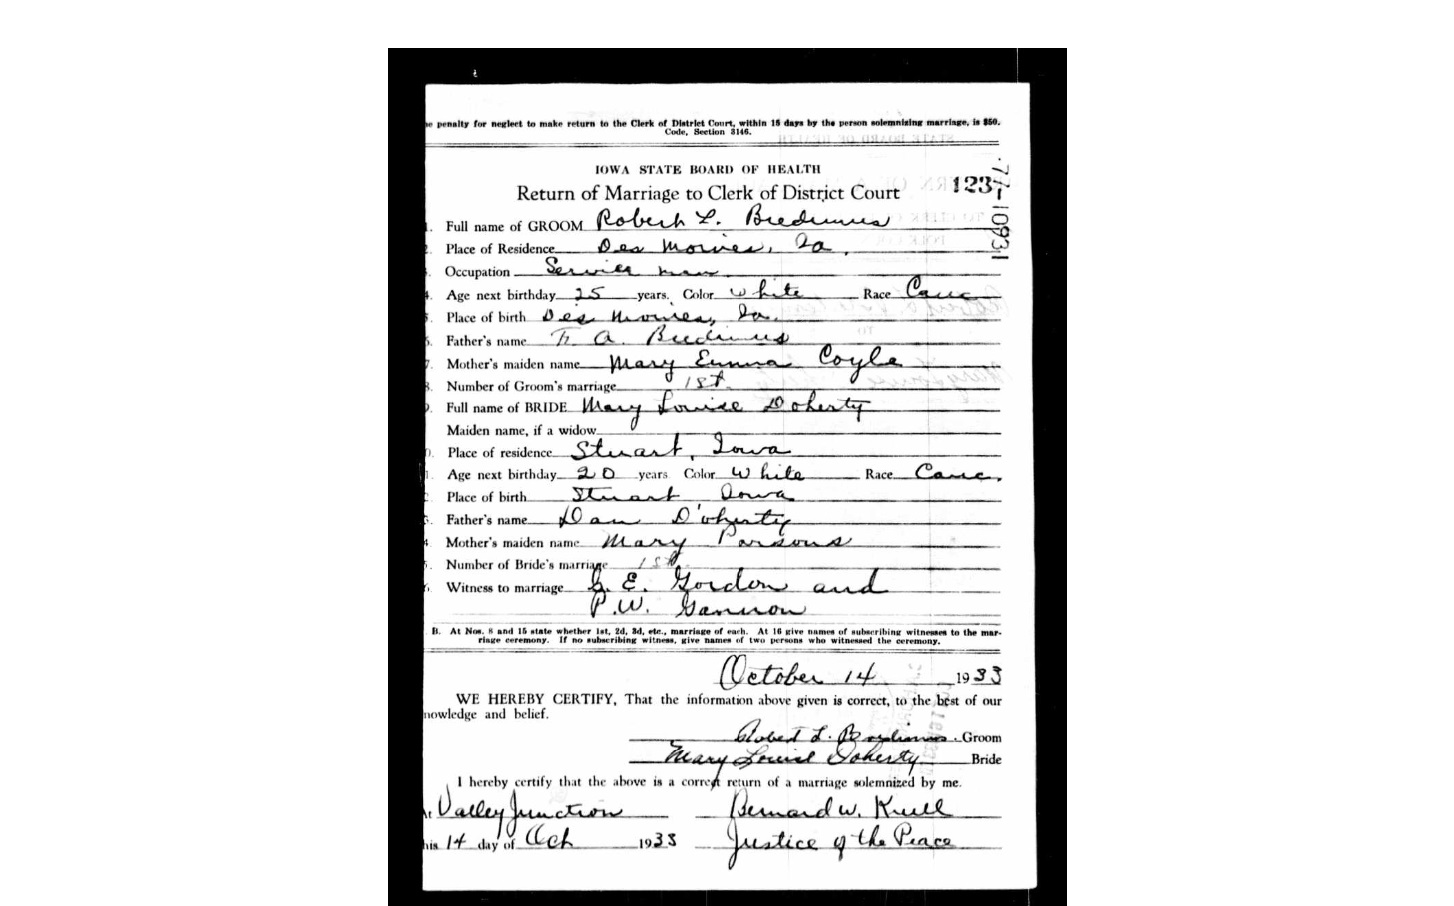 e penalty for neglect to make return to the Clerk of District Court, within 15 days by the person solemnizing marriage, is $50.
Code, Section 3146.
IOWA STATE BOARD OF HEALTH
Return of Marriage to Clerk of District Court 123
77-10931
1. Full name of GROOM Robert L. Bredimus
2. Place of Residence Des Moines, Ia.
3. Occupation Service man
4. Age next birthday 25 years. Color White Race Cauc
5. Place of birth Des Moines, Ia.
6. Father's name A. Bredimus
7. Mother's maiden name Mary Emma Coyle
8. Number of Groom's marriage 1st
9. Full name of BRIDE Mary Louise Doherty
Maiden name, if a widow
0. Place of residence Stuart, Iowa
1. Age next birthday 20 years Color White Race Cauc.
2. Place of birth Stuart Iowa
3. Father's name Dan D'oherty
4. Mother's maiden name Mary Parsons
5. Number of Bride's marriage 1st
6. Witness to marriage E. Gordon and
P.W. Gannon
B. At Nos. 8 and 15 state whether 1st, 2d, 3d, etc., marriage of each. At 16 give names of subscribing witnesses to the mar-
riage ceremony. If no subscribing witness, give names of two persons who witnessed the ceremony.
October 14 1933
WE HEREBY CERTIFY, That the information above given is correct, to the best of our
nowledge and belief.
Robert L. Bredimus Groom
Mary Louise Doherty Bride
I hereby certify that the above is a correct return of a marriage solemnized by me.
At Valley Junction Bernard W. Krull
his 14 day of Oct 1933 Justice of the Peace